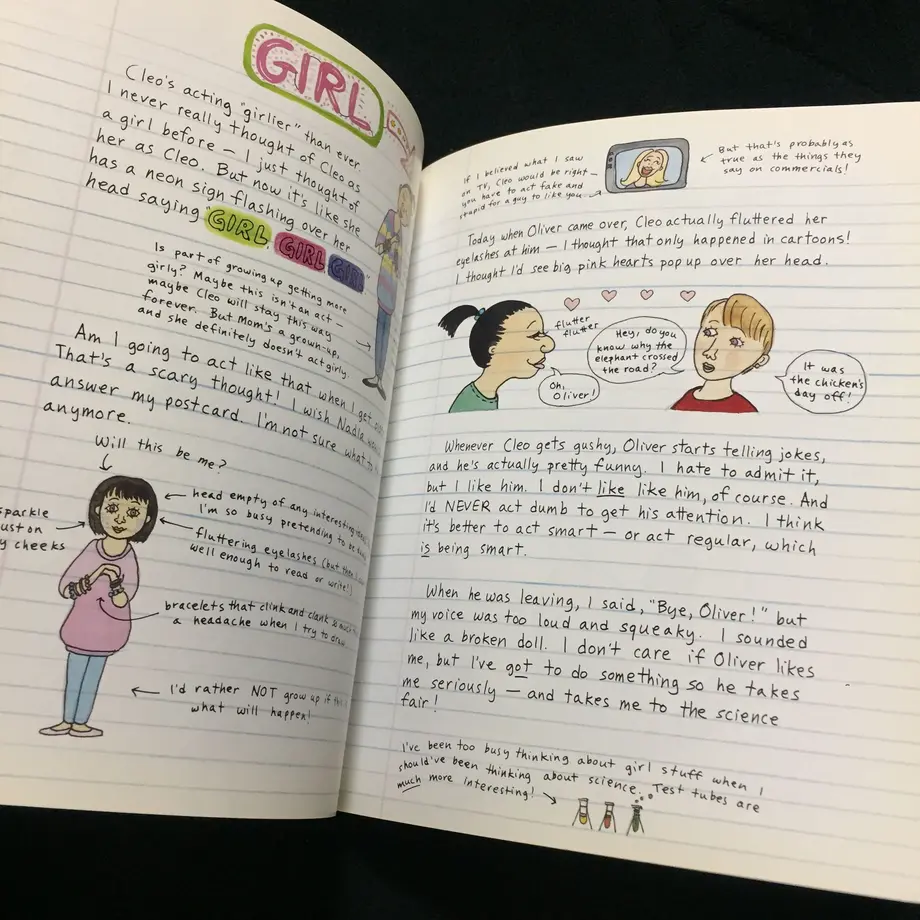 GIRL
Cleo's acting "girlier" than ever.
I never really thought of Cleo as
a girl before — I just thought of
her as Cleo. But now it's like she
has a neon sign flashing over her
head saying GIRL, GIRL GIRL"
Is part of growing up getting more
girly? Maybe this isn't an act —
maybe Cleo will stay this way
forever. But Mom's a grown-up,
and she definitely doesn't act girly.
Am I going to act like that when I get
That's a scary thought! I wish Nadia
answer my postcard. I'm not sure what to
anymore.
Will this be me?
head empty of any interesting
I'm so busy pretending to be
sparkle
dust on
my cheeks
fluttering eyelashes (but then I
well enough to read or write!)
bracelets that clink and clank so much
a headache when I try to draw
I'd rather NOT grow up if this
what will happen!
If I believed what I saw
on TV, Cleo would be right —
you have to act fake and
stupid for a guy to like you.
But that's probably as
true as the things they
say on commercials!
Today when Oliver came over, Cleo actually fluttered her
eyelashes at him — I thought that only happened in cartoons!
I thought I'd see big pink hearts pop up over her head.
flutter
flutter
Oh,
Oliver!
Hey, do you
know why the
elephant crossed
the road?
It was
the chicken's
day off!
Whenever Cleo gets gushy, Oliver starts telling jokes,
and he's actually pretty funny. I hate to admit it,
but I like him. I don't like like him, of course. And
I'd NEVER act dumb to get his attention. I think
it's better to act smart — or act regular, which
is being smart.
When he was leaving, I said, "Bye, Oliver!" but
my voice was too loud and squeaky. I sounded
like a broken doll. I don't care if Oliver likes
me, but I've got to do something so he takes
me seriously — and takes me to the science
fair!
I've been too busy thinking about girl stuff when I
should've been thinking about science. Test tubes are
much more interesting!